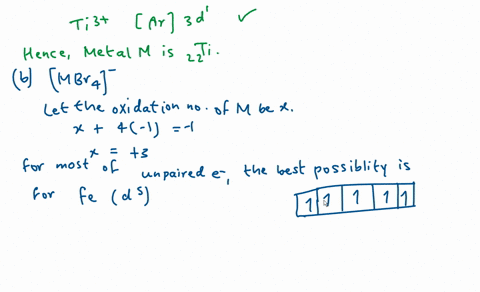 Ti3+ [Ar] 3d1 ✓
Hence, Metal M is 22Ti.
(b) [MBr4]-
Let the oxidation no. of M be x.
x + 4(-1) = -1
x = +3
for most of unpaired e-, the best possiblity is
for fe (d5)
1 1 1 1 1